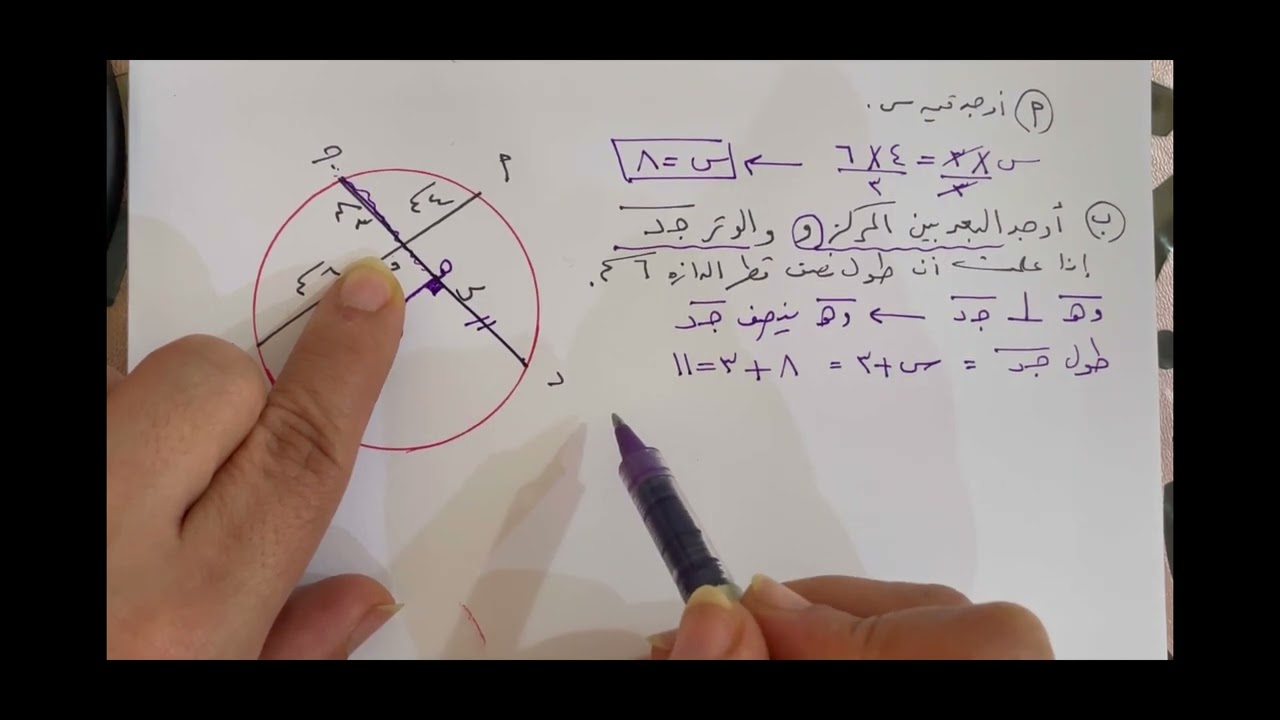 أ أوجد قيمة س.
س × ٣/٣ = ٤ × ٦/٣ ← س = ٨
ب أوجد البعد بين المركز و والوتر جد
إذا علمت أن طول نصف قطر الدائرة ٦ سم.
وهـ ⊥ جد ← وهـ ينصف جد
طول جد = س + ٣ = ٨ + ٣ = ١١
جـ
أ
٣ سم
٤ سم
س
د